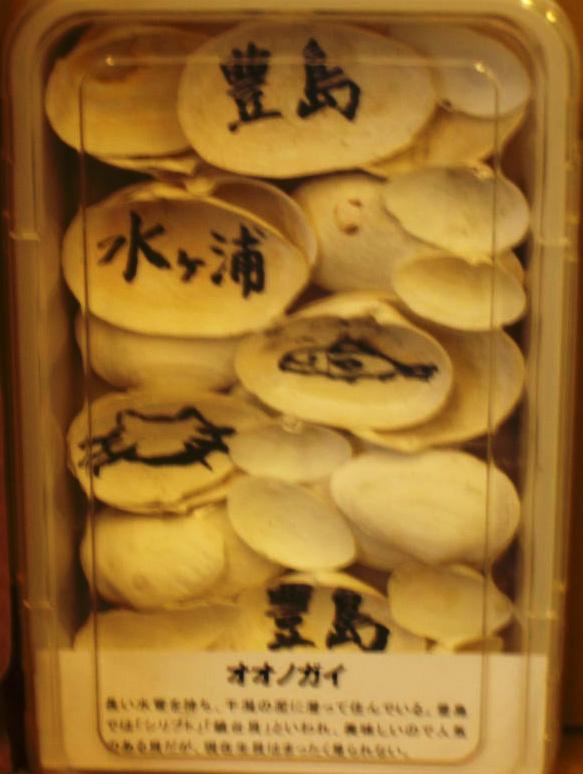 豊島
水ヶ浦
豊島
オオノガイ
長い水管を持ち、干潟の泥に潜って住んでいる。豊島
では「シリブト」「　貝」といわれ、美味しいので人気
のある貝だが、現在生貝はまったく見られない。